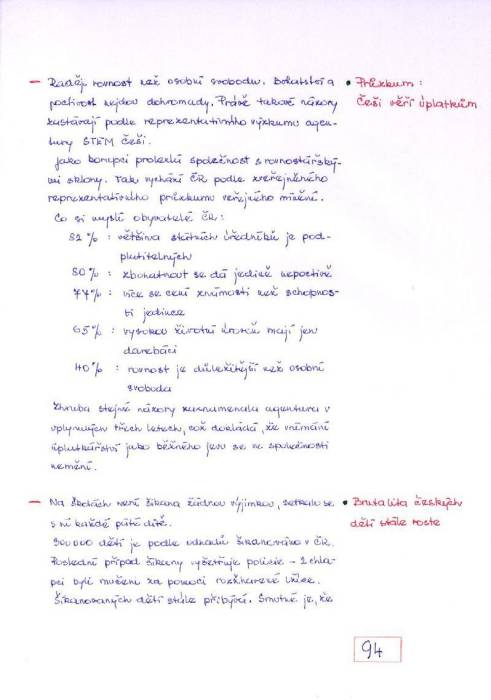 – Raděj rovnost než osobní svobodu. Bohatství a
poctivost nejdou dohromady. Právě takové názory
zastávají podle reprezentativního výzkumu agen-
tury STEM Češi.
Jako korupcí prolezlá společnost s rovnostářský-
mi sklony. Tak vychází ČR podle zveřejněného
reprezentativního průzkumu veřejného mínění.
Co si myslí obyvatelé ČR:
82% : většina státních úředníků je pod-
platitelných
80% : zbohatnout se dá jedině nepoctivě
77% : více se cení známosti než schopnos-
ti jedince
65% : vysokou životní úroveň mají jen
darebáci
40% : rovnost je důležitější než osobní
svoboda
Zhruba stejné názory zaznamenala agentura v
uplynulých třech letech, což dokládá, že vnímání
úplatkářství jako běžného jevu se ve společnosti
nemění.
• Průzkum:
Češi věří úplatkům
– Na školách není šikana žádnou výjimkou, setkalo se
s ní každé páté dítě.
300 000 dětí je podle odhadů šikanováno v ČR.
Poslední případ šikany vyšetřuje policie – 2 chla-
pci byli mučeni za pomoci rozžhavené
Šikanovaných dětí stále přibývá. Smutné je, že
• Brutalita českých
dětí stále roste
94